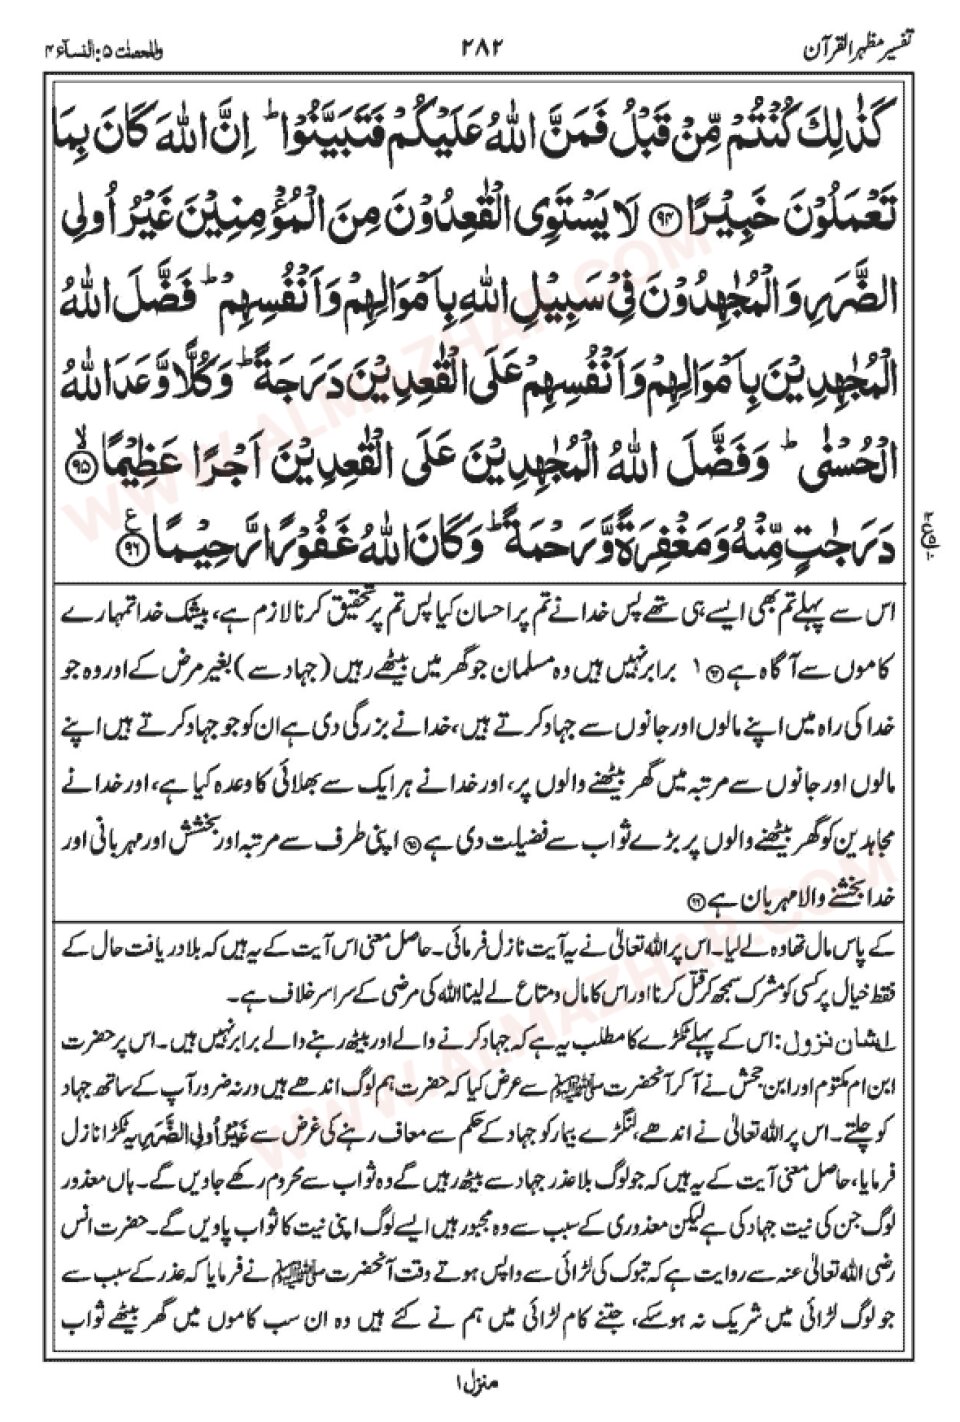 تفسیر مظہر القرآن ۲۸۲ والمحصنٰت ۵ : النسآء ۴
كَذٰلِكَ كُنْتُمْ مِّنْ قَبْلُ فَمَنَّ اللّٰهُ عَلَيْكُمْ فَتَبَيَّنُوْا ؕ اِنَّ اللّٰهَ كَانَ بِمَا
تَعْمَلُوْنَ خَبِيْرًا ﴿۹۴﴾ لَا يَسْتَوِى الْقٰعِدُوْنَ مِنَ الْمُؤْمِنِيْنَ غَيْرُ اُولِى
الضَّرَرِ وَالْمُجٰهِدُوْنَ فِىْ سَبِيْلِ اللّٰهِ بِاَمْوَالِهِمْ وَاَنْفُسِهِمْ ؕ فَضَّلَ اللّٰهُ
الْمُجٰهِدِيْنَ بِاَمْوَالِهِمْ وَاَنْفُسِهِمْ عَلَى الْقٰعِدِيْنَ دَرَجَةً ؕ وَكُلًّا وَّعَدَ اللّٰهُ
الْحُسْنٰى ؕ وَفَضَّلَ اللّٰهُ الْمُجٰهِدِيْنَ عَلَى الْقٰعِدِيْنَ اَجْرًا عَظِيْمًا ۙ﴿۹۵﴾
دَرَجٰتٍ مِّنْهُ وَمَغْفِرَةً وَّرَحْمَةً ؕ وَكَانَ اللّٰهُ غَفُوْرًا رَّحِيْمًا ﴿۹۶﴾ ع
اس سے پہلے تم بھی ایسے ہی تھے پس خدا نے تم پر احسان کیا پس تم پر تحقیق کرنا لازم ہے، بیشک خدا تمہارے
کاموں سے آگاہ ہے ﴿۹۴﴾ ۱ برابر نہیں ہیں وہ مسلمان جو گھر میں بیٹھے رہیں (جہاد سے) بغیر مرض کے اور وہ جو
خدا کی راہ میں اپنے مالوں اور جانوں سے جہاد کرتے ہیں، خدا نے بزرگی دی ہے ان کو جو جہاد کرتے ہیں اپنے
مالوں اور جانوں سے مرتبہ میں گھر بیٹھنے والوں پر، اور خدا نے ہر ایک سے بھلائی کا وعدہ کیا ہے، اور خدا نے
مجاہدین کو گھر بیٹھنے والوں پر بڑے ثواب سے فضیلت دی ہے ﴿۹۵﴾ اپنی طرف سے مرتبہ اور بخشش اور مہربانی اور
خدا بخشنے والا مہربان ہے ﴿۹۶﴾
کے پاس مال تھا وہ لے لیا۔ اس پر اللہ تعالیٰ نے یہ آیت نازل فرمائی۔ حاصل معنی اس آیت کے یہ ہیں کہ بلا دریافت حال کے
فقط خیال پر کسی کو مشرک سمجھ کر قتل کرنا اور اس کا مال و متاع لے لینا اللہ کی مرضی کے سراسر خلاف ہے۔
۱ شان نزول: اس کے پہلے ٹکڑے کا مطلب یہ ہے کہ جہاد کرنے والے اور بیٹھ رہنے والے برابر نہیں ہیں۔ اس پر حضرت
ابن ام مکتوم اور ابن جحش نے آکر آنحضرت ﷺ سے عرض کیا کہ حضرت ہم لوگ اندھے ہیں ورنہ ضرور آپ کے ساتھ جہاد
کو چلتے۔ اس پر اللہ تعالیٰ نے اندھے، لنگڑے بیمار کو جہاد کے حکم سے معاف رہنے کی غرض سے غَیْرُ اُولِی الضَّرَرِ یہ ٹکڑا نازل
فرمایا، حاصل معنی آیت کے یہ ہیں کہ جو لوگ بلا عذر جہاد سے بیٹھ رہیں گے وہ ثواب سے محروم رکھے جاویں گے۔ ہاں معذور
لوگ جن کی نیت جہاد کی ہے لیکن معذوری کے سبب سے وہ مجبور ہیں ایسے لوگ اپنی نیت کا ثواب پاویں گے۔ حضرت انس
رضی اللہ تعالیٰ عنہ سے روایت ہے کہ تبوک کی لڑائی سے واپس ہوتے وقت آنحضرت ﷺ نے فرمایا کہ عذر کے سبب سے
جو لوگ لڑائی میں شریک نہ ہو سکے، جتنے کام لڑائی میں ہم نے کئے ہیں وہ ان سب کاموں میں گھر بیٹھے ثواب
منزل ۱
WWW.ALMAZHAR.COM
WWW.ALMAZHAR.COM